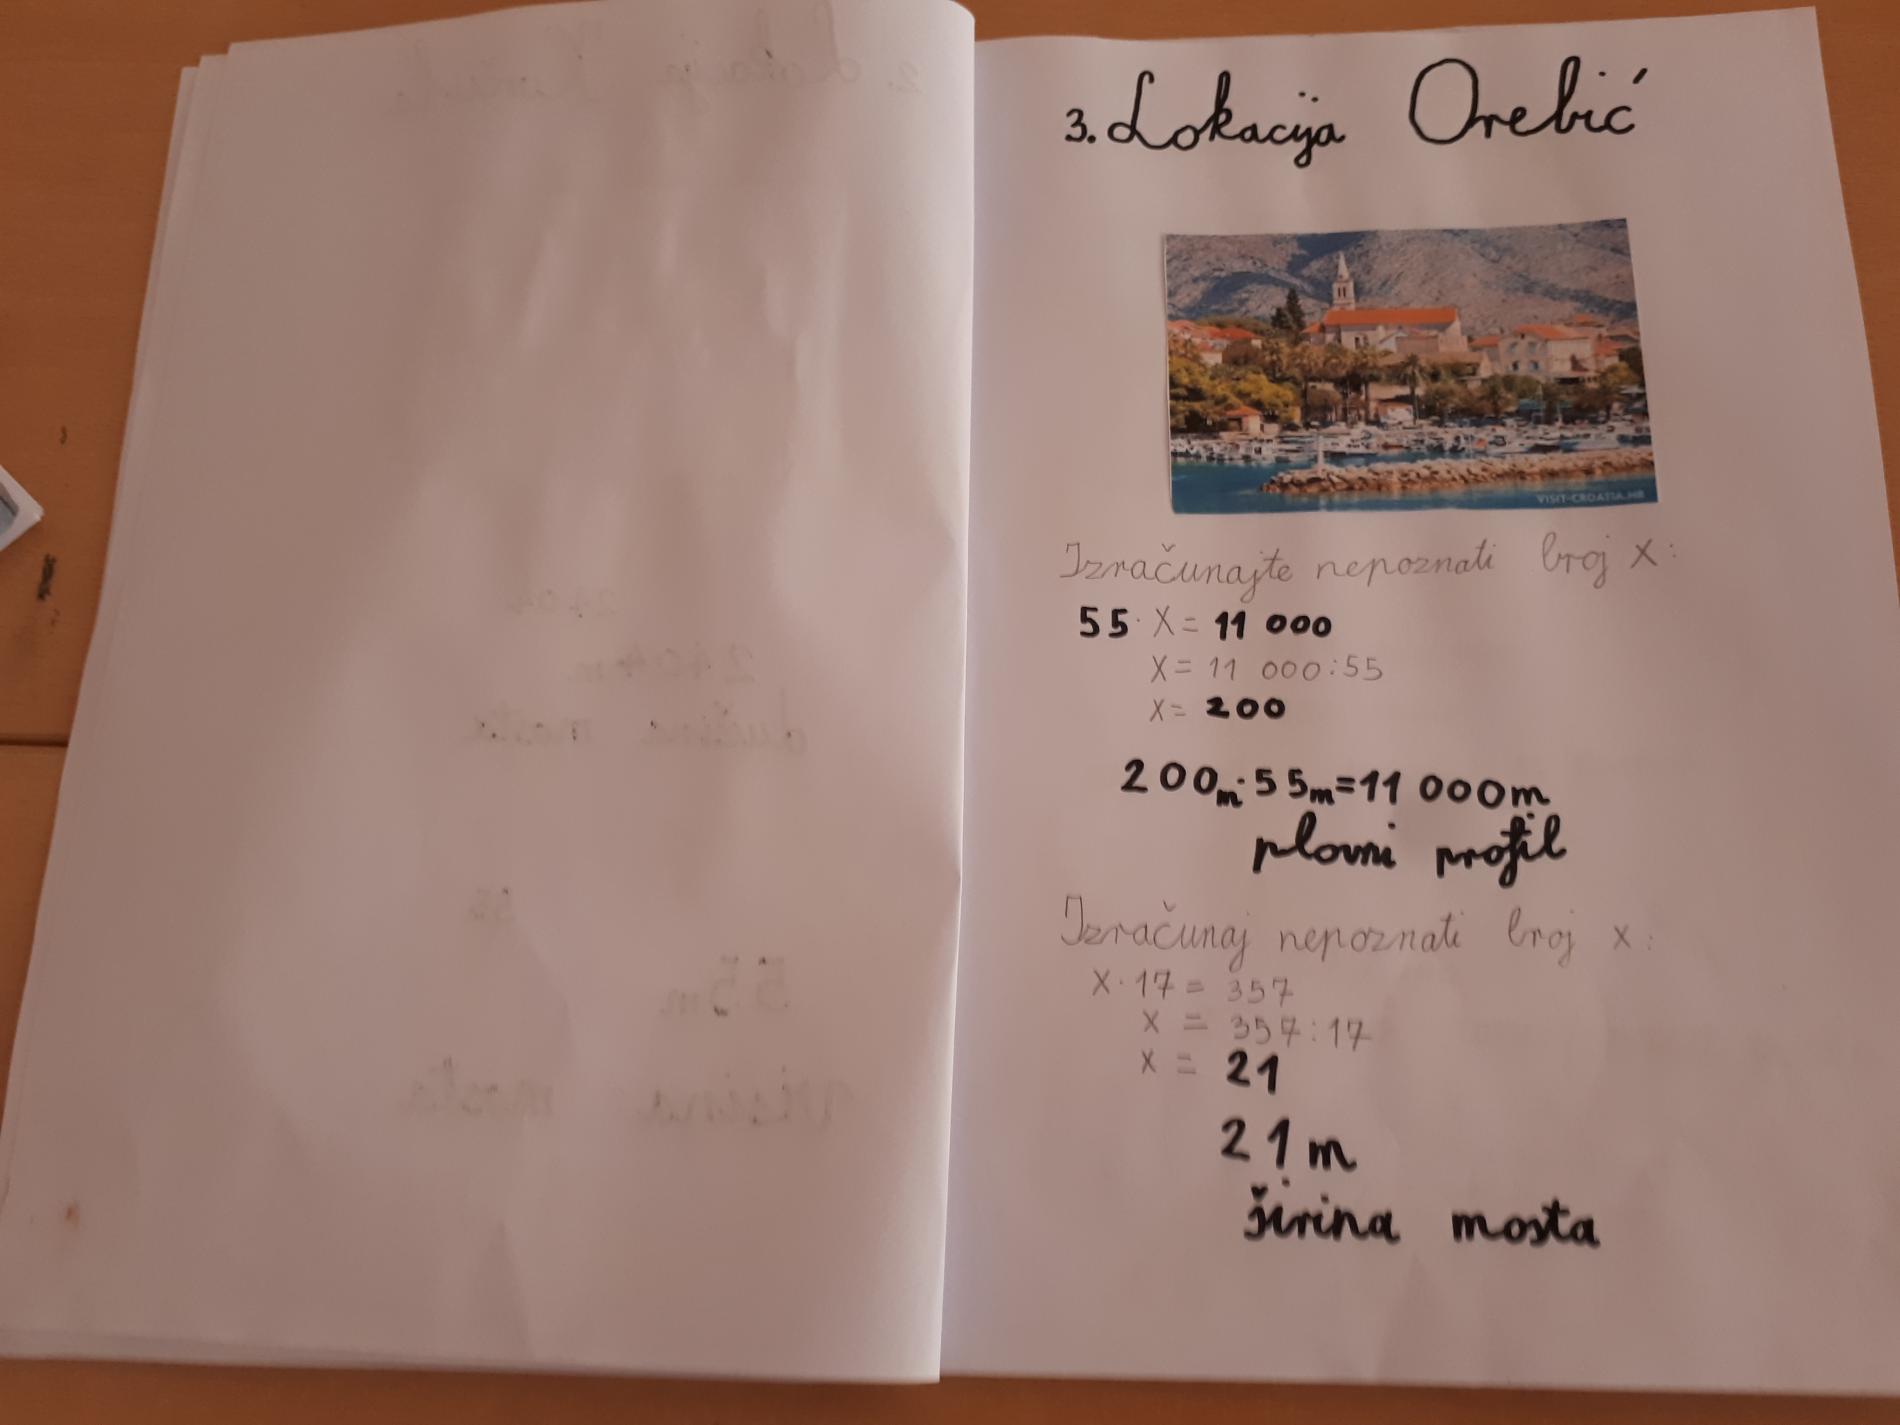 3. Lokacija Orebić
VISIT-CROATIA.HR
Izračunajte nepoznati broj x:
55 · X = 11 000
X = 11 000:55
X = 200
200m · 55m = 11 000m
plovni profil
Izračunaj nepoznati broj x:
X · 17 = 357
X = 357:17
X = 21
21m
širina mosta